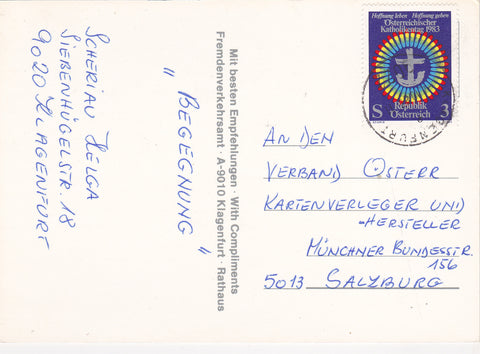 SCHERIAU HELGA
SIEBENHÜGELSTR 18
9020 KLAGENFURT
„ BEGEGNUNG “
Mit besten Empfehlungen · With Compliments
Fremdenverkehrsamt · A-9010 Klagenfurt · Rathaus
Hoffnung leben Hoffnung geben
Österreichischer
Katholikentag 1983
S 3
Republik
Österreich
AN DEN
VERBAND ÖSTERR
KARTENVERLEGER UND
-HERSTELLER
MÜNCHNER BUNDESSTR.
156
5013 SALZBURG